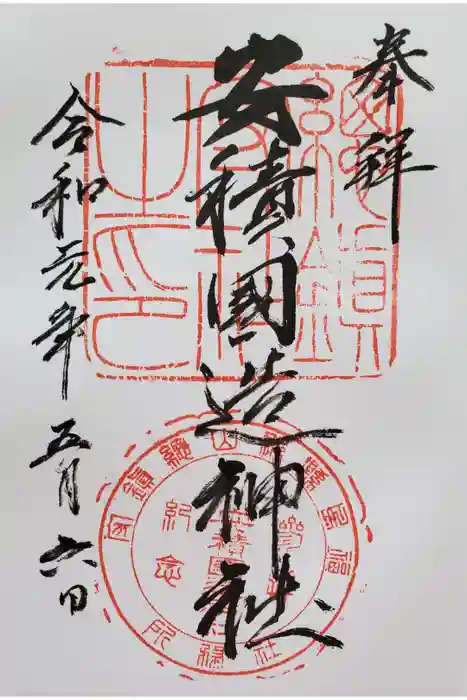 奉拝
安積國造神社
令和元年五月六日
紀念